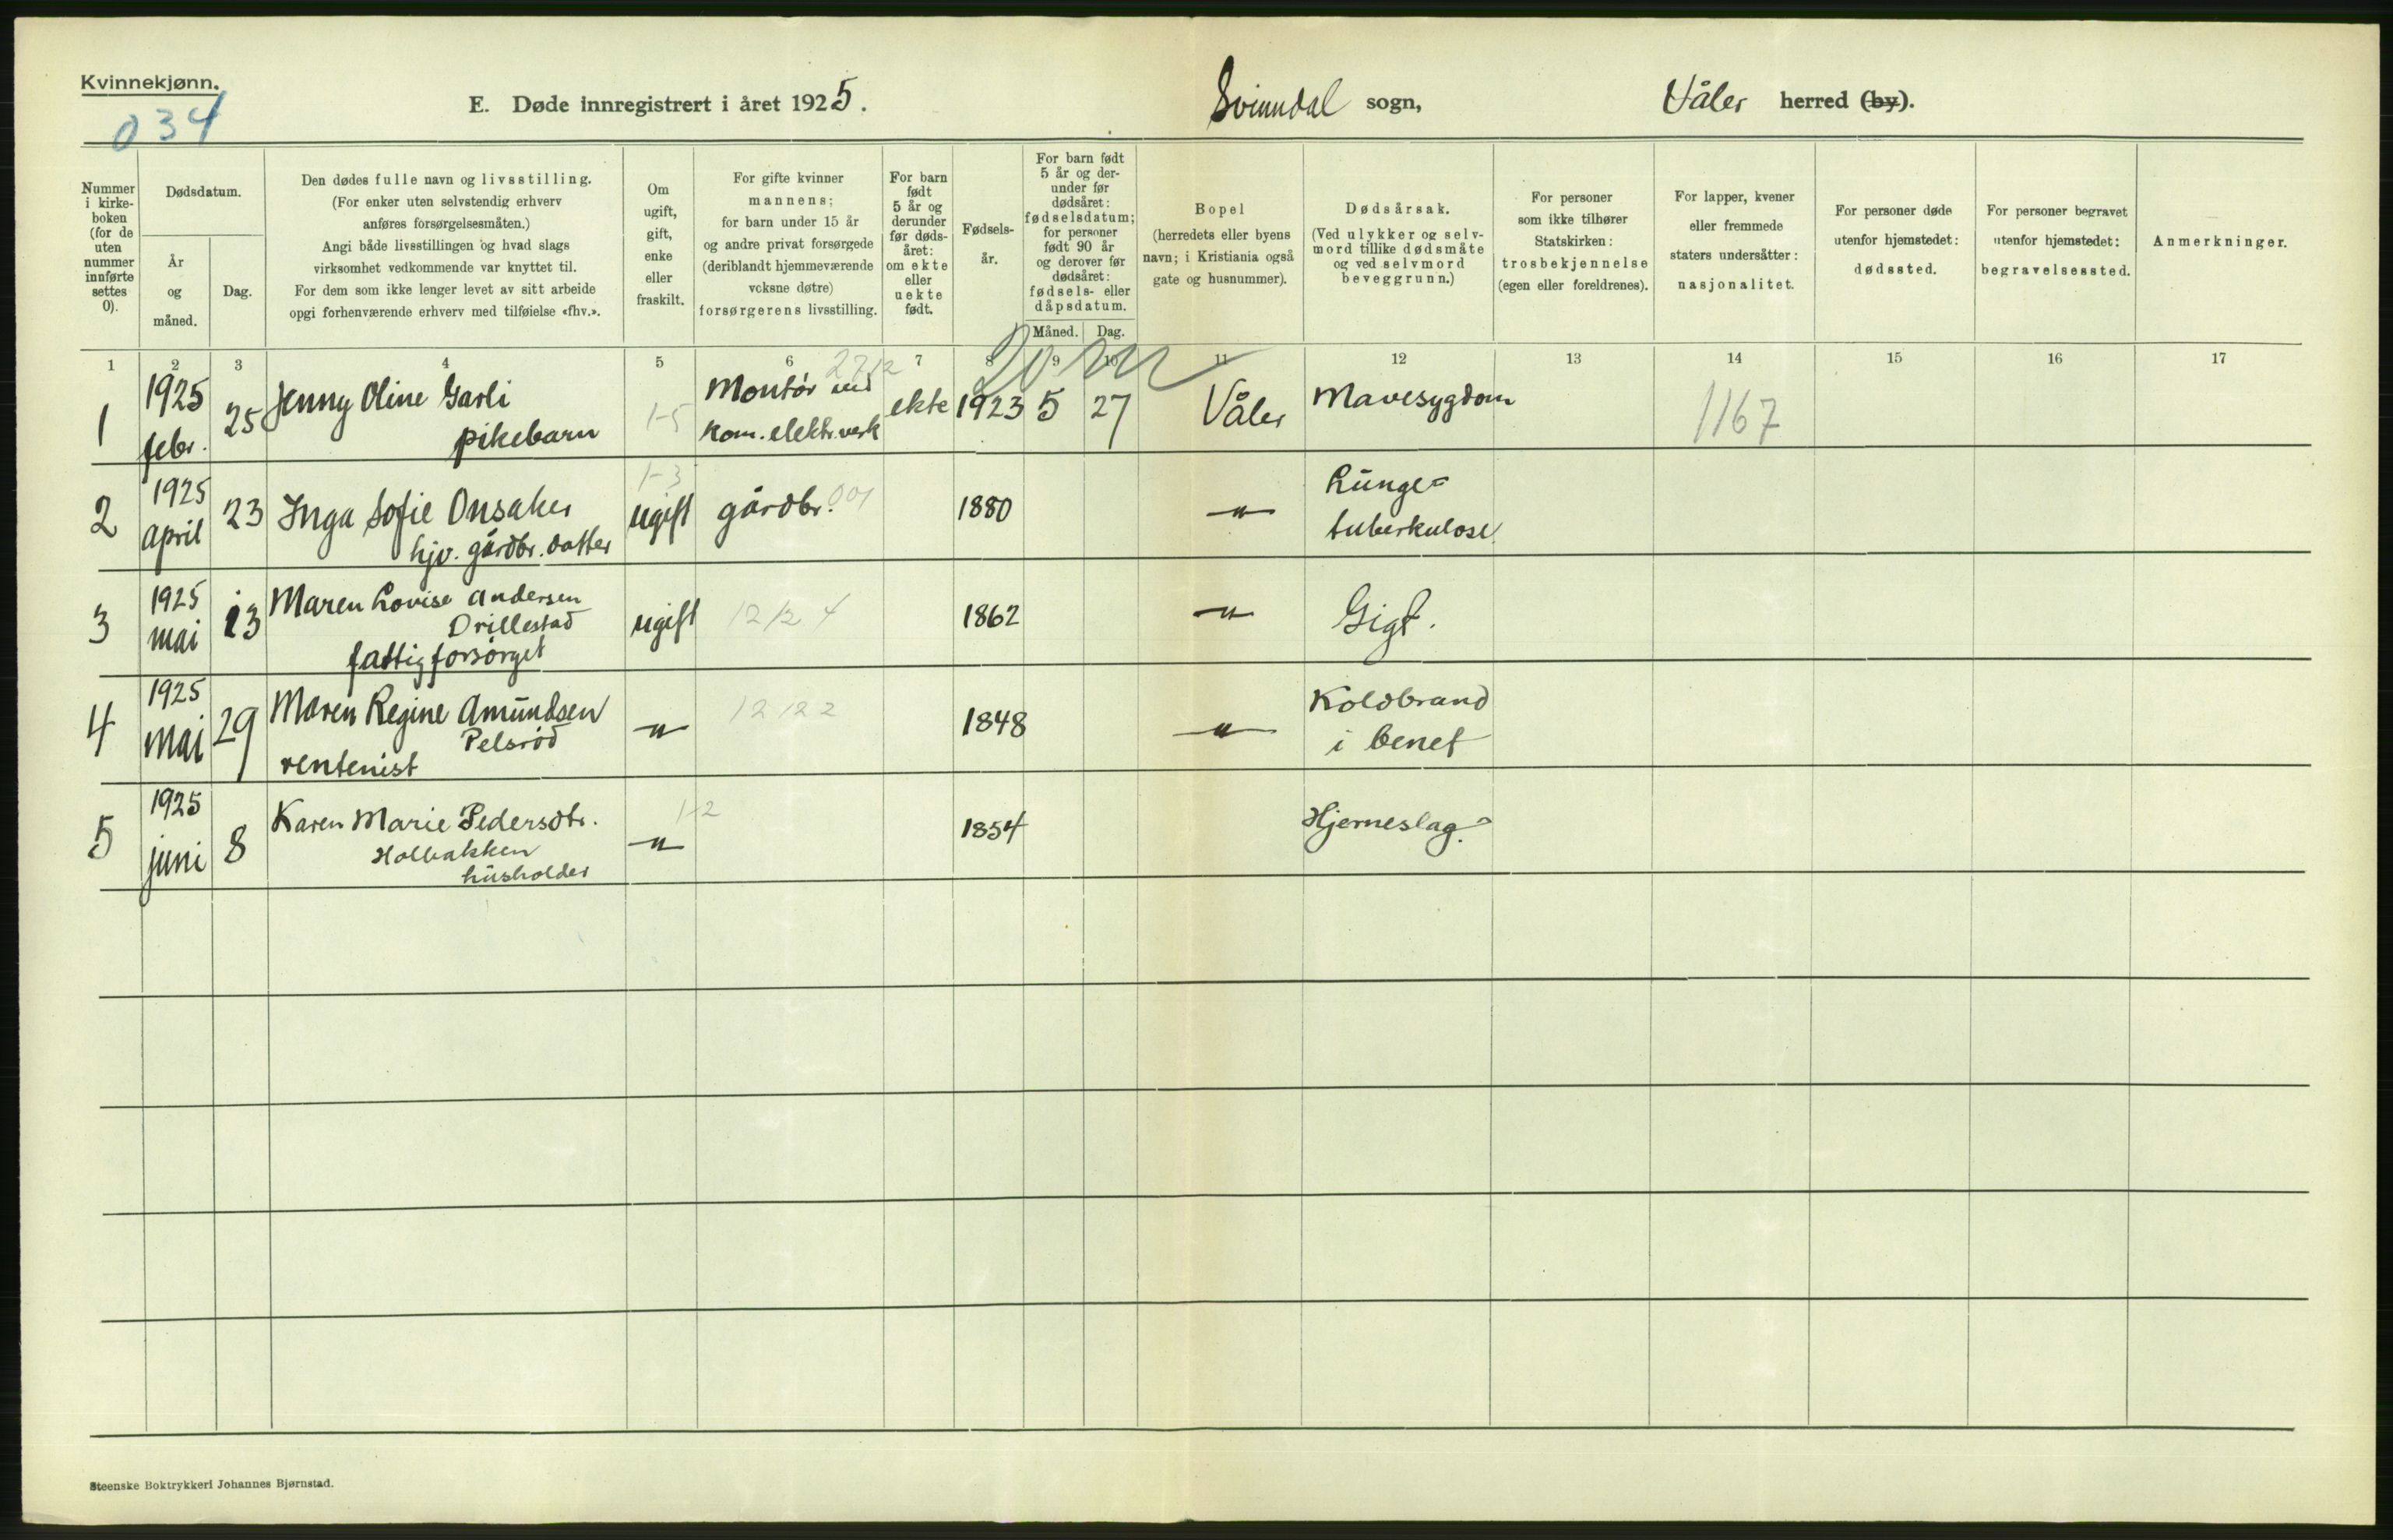 Kvinnekjønn.
034
E. Døde innregistrert i året 1925.
Svinndal sogn,
Våler herred (by).
Nummer
i kirke-
boken
(for de
uten
nummer
innførte
settes
0).
Dødsdatum.
År
og
måned.
Dag.
Den dødes fulle navn og livsstilling.
(For enker uten selvstendig erhverv
anføres forsørgelsesmåten.)
Angi både livsstillingen og hvad slags
virksomhet vedkommende var knyttet til.
For dem som ikke lenger levet av sitt arbeide
opgi forhenværende erhverv med tilføielse «fhv.».
Om
ugift,
gift,
enke
eller
fraskilt.
For gifte kvinner
mannens;
for barn under 15 år
og andre privat forsørgede
(deriblandt hjemmeværende
voksne døtre)
forsørgerens livsstilling.
For barn
født
5 år og
derunder
før døds-
året:
om ekte
eller
uekte
født.
Fødsels-
år.
For barn født
5 år og der-
under før
dødsåret:
fødselsdatum;
for personer
født 90 år
og derover før
dødsåret:
fødsels- eller
dåpsdatum.
Måned. Dag.
Bopel
(herredets eller byens
navn; i Kristiania også
gate og husnummer).
Dødsårsak.
(Ved ulykker og selv-
mord tillike dødsmåte
og ved selvmord
beveggrunn.)
For personer
som ikke tilhører
Statskirken:
trosbekjennelse
(egen eller foreldrenes).
For lapper, kvener
eller fremmede
staters undersåtter:
nasjonalitet.
For personer døde
utenfor hjemstedet:
dødssted.
For personer begravet
utenfor hjemstedet:
begravelsessted.
Anmerkninger.
1 2 3 4 5 6 7 8 9 10 11 12 13 14 15 16 17
1 1925 febr. 25 Jenny Oline Garli
pikebarn
1-5
Montør ved
kom. elektr.verk
ekte 1923 5 27 Våler Mavesygdom 1167
2 1925 april 23 Inga Sofie Onsaker
hjv. gårdbr. datter
1-3
ugift gårdbr. 001 1880 -"- Lunge=
tuberkulose
3 1925 mai 13 Maren Lovise Andersen
Drillestad
fattigforsørget
ugift 12/2 4 1862 -"- Gigt.
4 1925 mai 29 Maren Regine Amundsen
Pelsrød
rentenist
-"- 12 122 1848 -"- Koldbrand
i benet
5 1925 juni 8 Karen Marie Pedersdtr.
Holbakken
husholder
-"- 1-2 1854 Hjerneslag.
Steenske Boktrykkeri Johannes Bjørnstad.